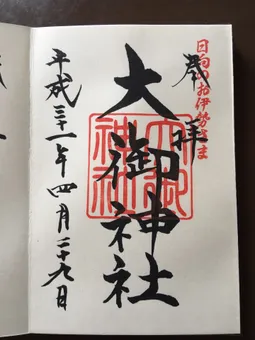 日向のお伊勢さま
奉拝
大御神社
大御神社
平成三十一年四月二十九日